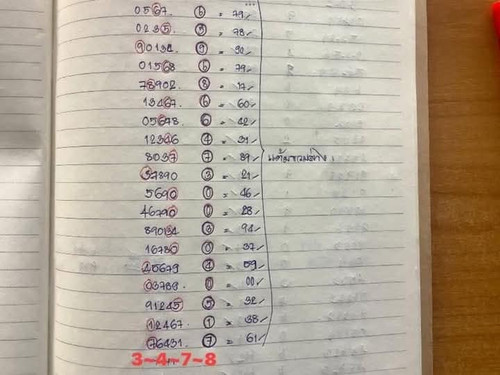 0567. ⑥ = 79✓
0235. ⑤ = 78✓
90134 ⑨ = 90✓
01568 ⑥ = 79✓
78902 ⑧ = 17✓
13467. ⑥ = 60✓
05678 ⑥ = 42✓
12346 ④ = 31✓
3037 ⑦ = 89✓
37890 ③ = 21✓
5690 ⓪ = 46✓
46790 ⓪ = 28✓
89034 ③ = 94✓
16780 ⓪ = 37✓
⓪ = 00✓
91245 ⑤ = 32✓
12467. ① = 38✓
76431. ⑦ = 61✓
3~4~7~8